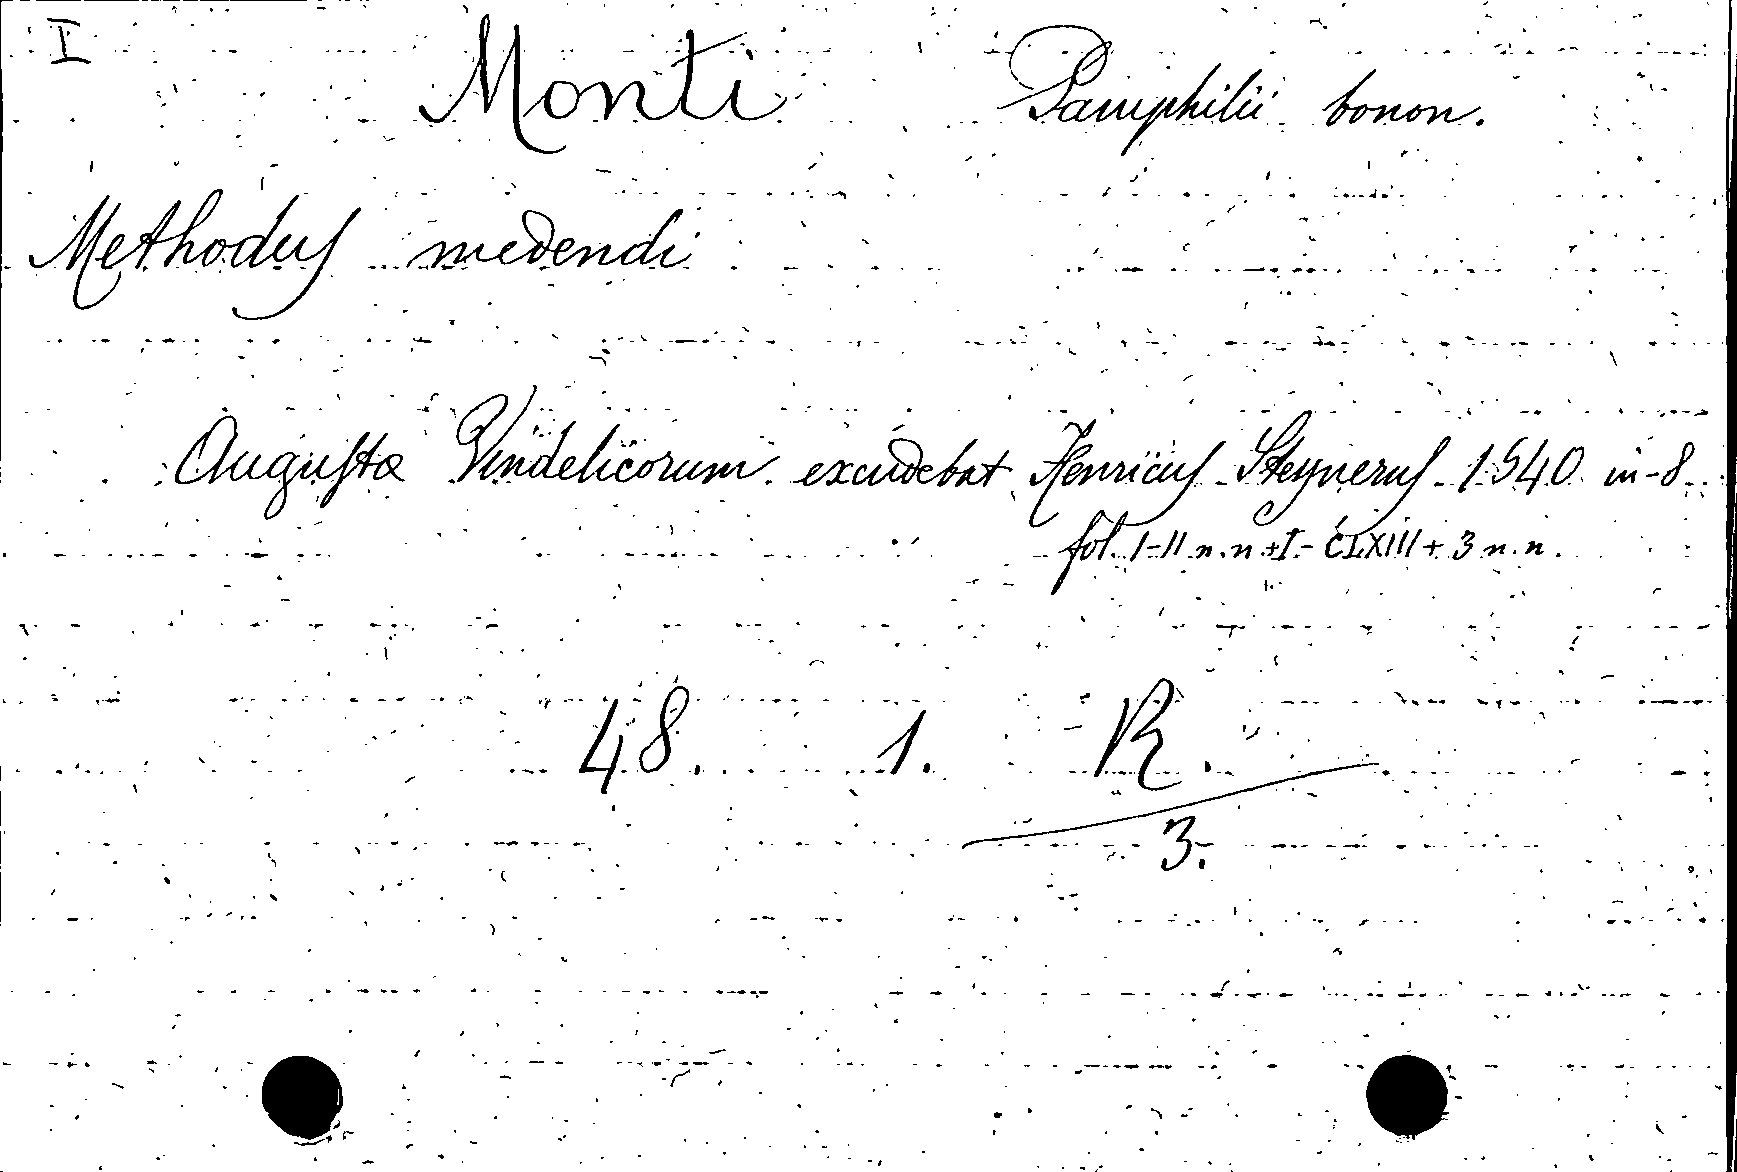 I
Monti Pamphilii bonon.
Methodus medendi
Augustæ Vindelicorum excudebat Henricus Steynerus 1540 in-8
fol. I-II n.n. + I - CLXIII + 3 n.n.
48. 1. R.
3.